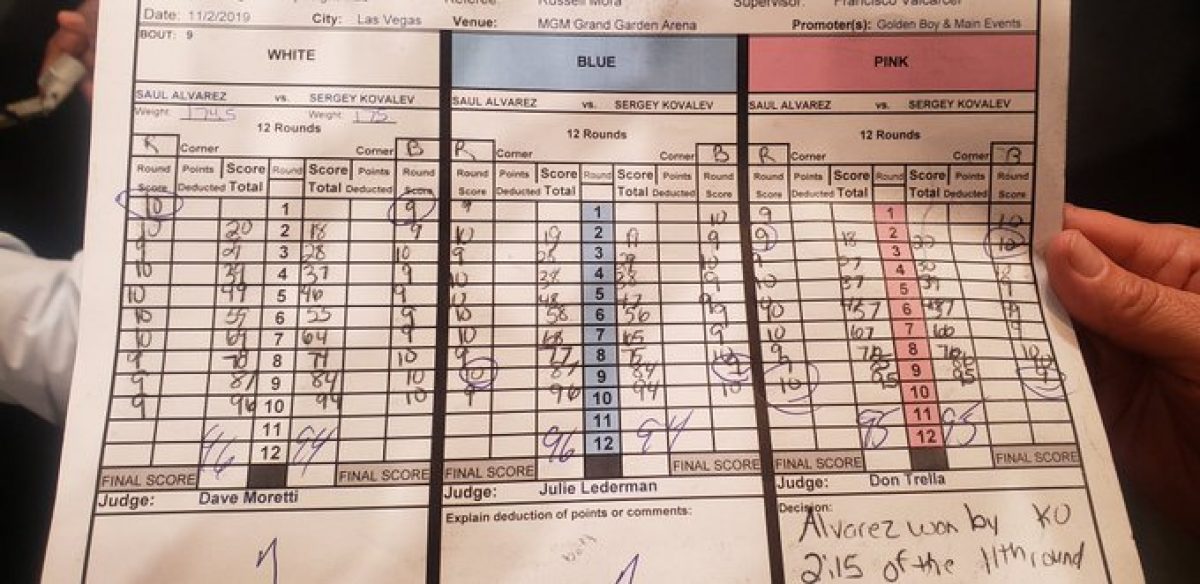 Referee: Russell Mora Supervisor: Francisco Valcarcel
Date: 11/2/2019 City: Las Vegas Venue: MGM Grand Garden Arena Promoter(s): Golden Boy & Main Events
BOUT: 9
WHITE BLUE PINK
SAUL ALVAREZ vs. SERGEY KOVALEV SAUL ALVAREZ vs. SERGEY KOVALEV SAUL ALVAREZ vs. SERGEY KOVALEV
Weight: 174.5 Weight: 175
12 Rounds 12 Rounds 12 Rounds
R Corner Corner B R Corner Corner B R Corner Corner B
Round Points Score Round Score Points Round Round Points Score Round Score Points Round Round Points Score Round Score Points Round
Score Deducted Total Total Deducted Score Score Deducted Total Total Deducted Score Score Deducted Total Total Deducted Score
10 1 9 9 1 10 9 1 10
10 20 2 18 9 10 19 2 9 9 18 2 20 10
9 29 3 28 10 9 28 3 29 10 9 27 3 30
10 39 4 37 9 10 38 4 38 9 10 37 4 39
10 49 5 46 9 48 5 47 9 5
10 59 6 55 9 10 58 6 56 9 6
10 69 7 64 9 10 68 7 65 9 10 7
9 78 8 74 10 9 77 8 75 10 9 76 8 76 10
9 87 9 84 10 10 87 9 84 9 9
9 96 10 94 10 9 96 10 94 10 10 95 10 95 9
11 11 11
96 12 94 96 12 94 95 12 95
FINAL SCORE FINAL SCORE FINAL SCORE FINAL SCORE FINAL SCORE FINAL SCORE
Judge: Dave Moretti Judge: Julie Lederman Judge: Don Trella
Explain deduction of points or comments: Decision:
Alvarez won by KO
2:15 of the 11th round